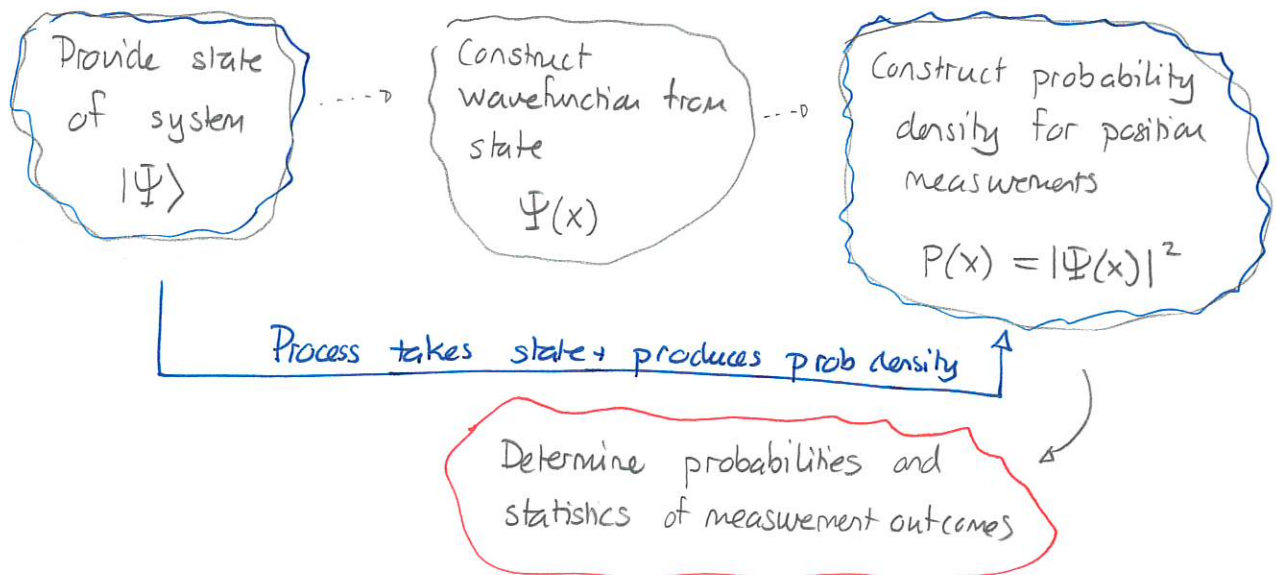 Provide state
of system
|Ψ⟩
Construct
wavefunction from
state
Ψ(x)
Construct probability
density for position
measurements
P(x) = |Ψ(x)|²
Process takes state + produces prob density
Determine probabilities and
statistics of measurement outcomes